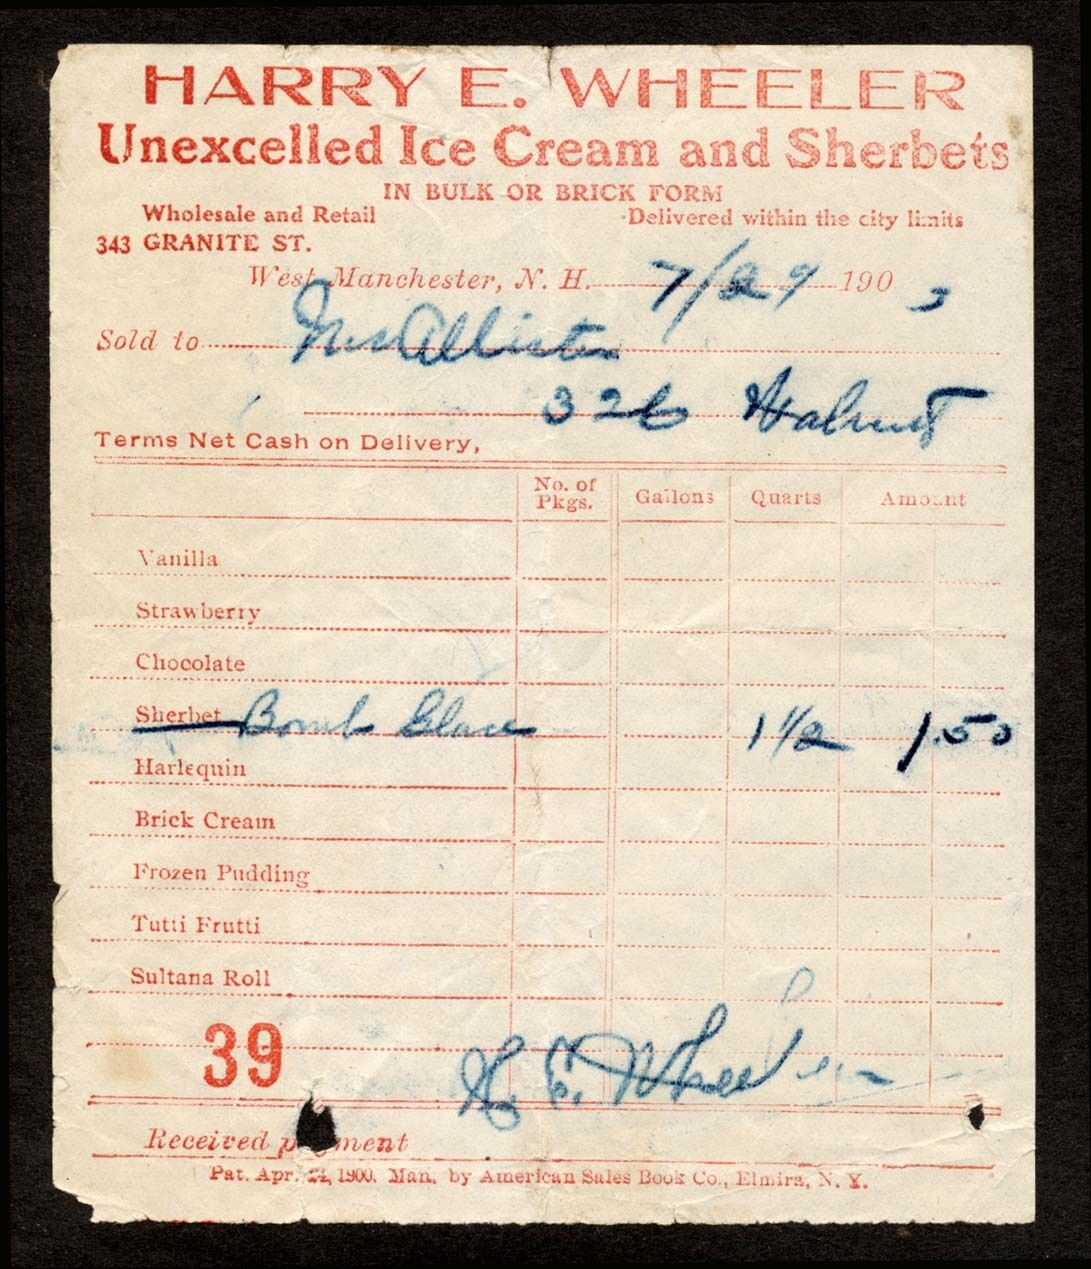 HARRY E. WHEELER
Unexcelled Ice Cream and Sherbets
IN BULK OR BRICK FORM
Wholesale and Retail Delivered within the city limits
343 GRANITE ST.
West Manchester, N. H. 7/29 190 3
Sold to McAllister
326 Walnut
Terms Net Cash on Delivery,
No. of Pkgs. Gallons Quarts Amount
Vanilla
Strawberry
Chocolate
Sherbet Bomb Glace 1 1/2 1.50
Harlequin
Brick Cream
Frozen Pudding
Tutti Frutti
Sultana Roll
39
H. E. Wheeler
Received payment
Pat. Apr. 24, 1900. Man. by American Sales Book Co., Elmira, N. Y.